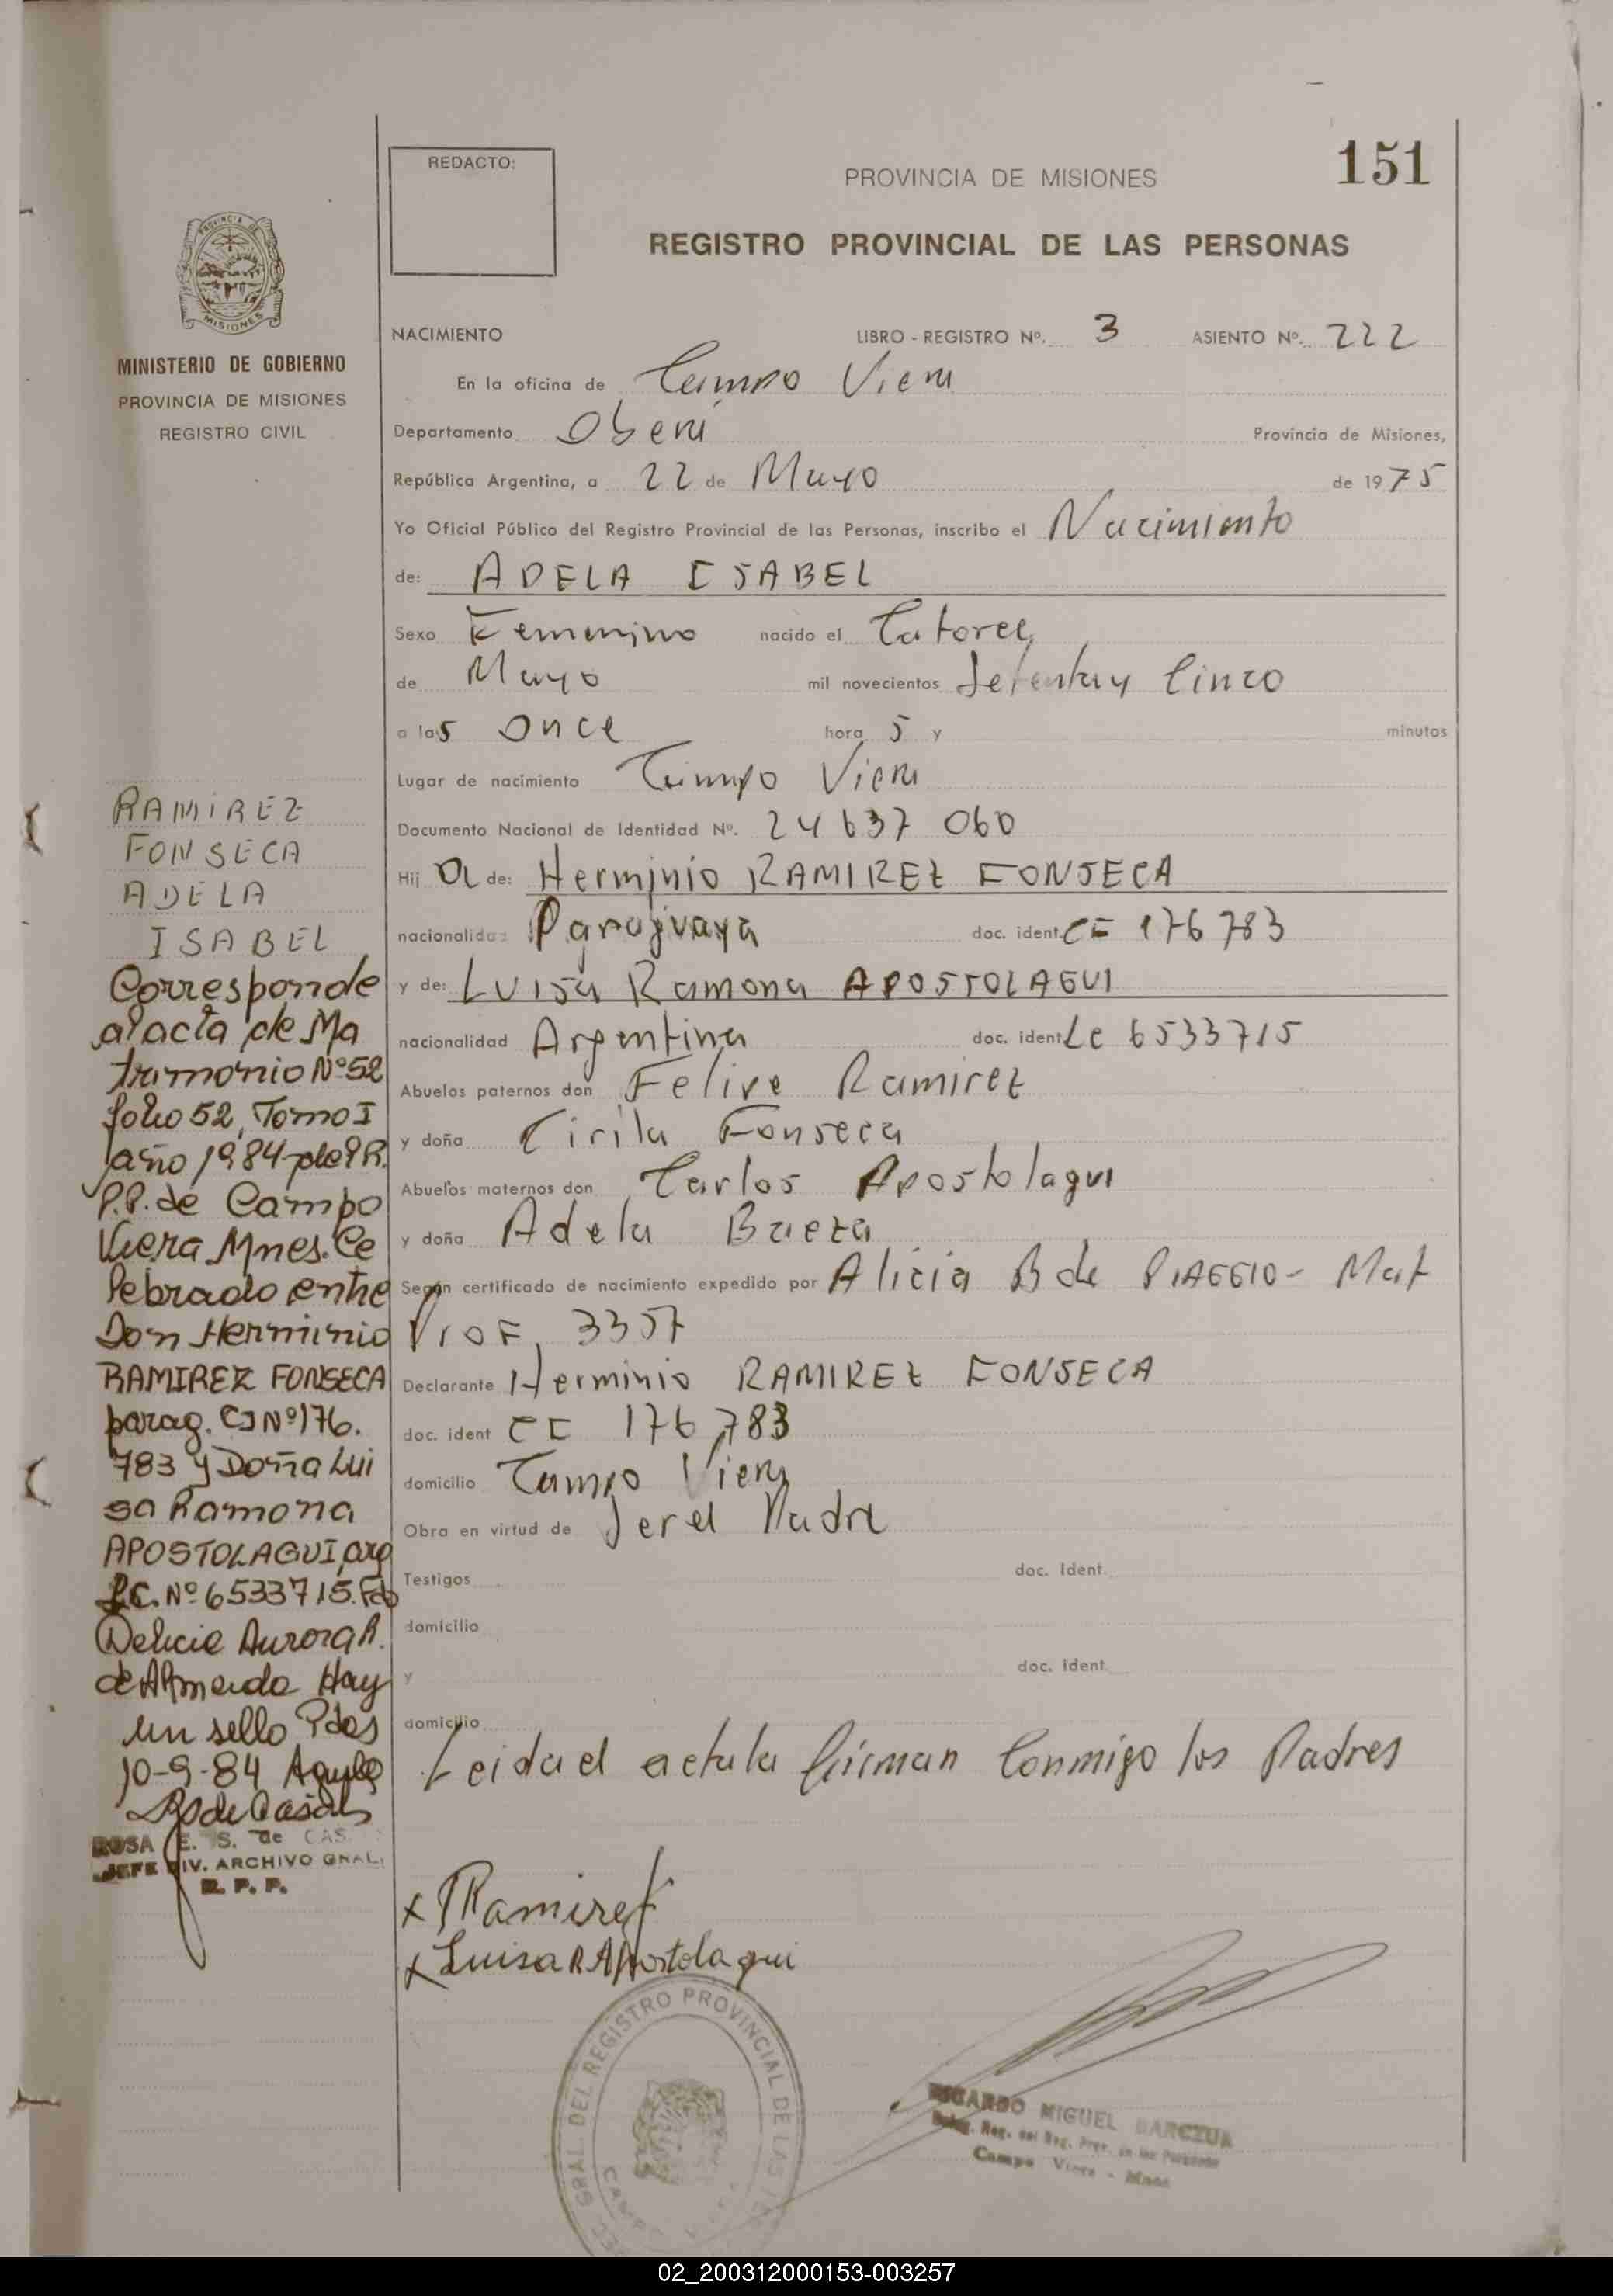 151
REDACTO:
PROVINCIA DE MISIONES
REGISTRO PROVINCIAL DE LAS PERSONAS
PROVINCIA DE
MISIONES
MINISTERIO DE GOBIERNO
PROVINCIA DE MISIONES
REGISTRO CIVIL
NACIMIENTO LIBRO - REGISTRO Nº. 3 ASIENTO Nº. 222
En la oficina de Campo Viera
Departamento Oberá Provincia de Misiones,
República Argentina, a 22 de Mayo de 1975
Yo Oficial Público del Registro Provincial de las Personas, inscribo el Nacimiento
de: ADELA ISABEL
Sexo Femenino nacido el Catorce,
de Mayo mil novecientos Setentay Cinco
a las Once hora s y minutos
Lugar de nacimiento Campo Viera
Documento Nacional de Identidad Nº. 24 637 060
Hij a de: Herminio RAMIREZ FONSECA
nacionalidad Paraguaya doc. ident. CI 176 783
y de: LUISA Ramona APOSTOLAGUI
nacionalidad Argentina doc. ident LC 6533715
Abuelos paternos don Felipe Ramirez
y doña Cirila Fonseca
Abuelos maternos don Carlos Apostolagui
y doña Adela Baeza
Según certificado de nacimiento expedido por Alicia B de PIAGGIO - Mat
Prof, 3357
Declarante Herminio RAMIREZ FONSECA
doc. ident CI 176,783
domicilio Campo Viera
Obra en virtud de Ser el Padre
Testigos doc. ident.
domicilio
y doc. ident.
domicilio
Leida el acta la firman Conmigo los Padres
RAMIREZ
FONSECA
ADELA
ISABEL
Corresponde
al acta de Ma
trimonio Nº 52
folio 52, Tomo I
año 1984 del R.
P.P. de Campo
Viera Mnes. Ce
lebrado entre
Don Herminio
RAMIREZ FONSECA
parag. CI Nº 176.
783 y Doña Lui
sa Ramona
APOSTOLAGUI, arg
L.C. Nº 6533715. Fdo
Delicia Aurora R.
de Almeida Hay
un sello Pdas
10-9-84
R de Casals
ROSA E. S. de CAS
JEFE DIV. ARCHIVO GRAL.
R. P. P.
x Ramirez
x Luisa R Apostolagui
GRAL. DEL REGISTRO PROVINCIAL DE LAS
RICARDO MIGUEL BARCZUK
Campo Viera - Mnes
02_200312000153-003257